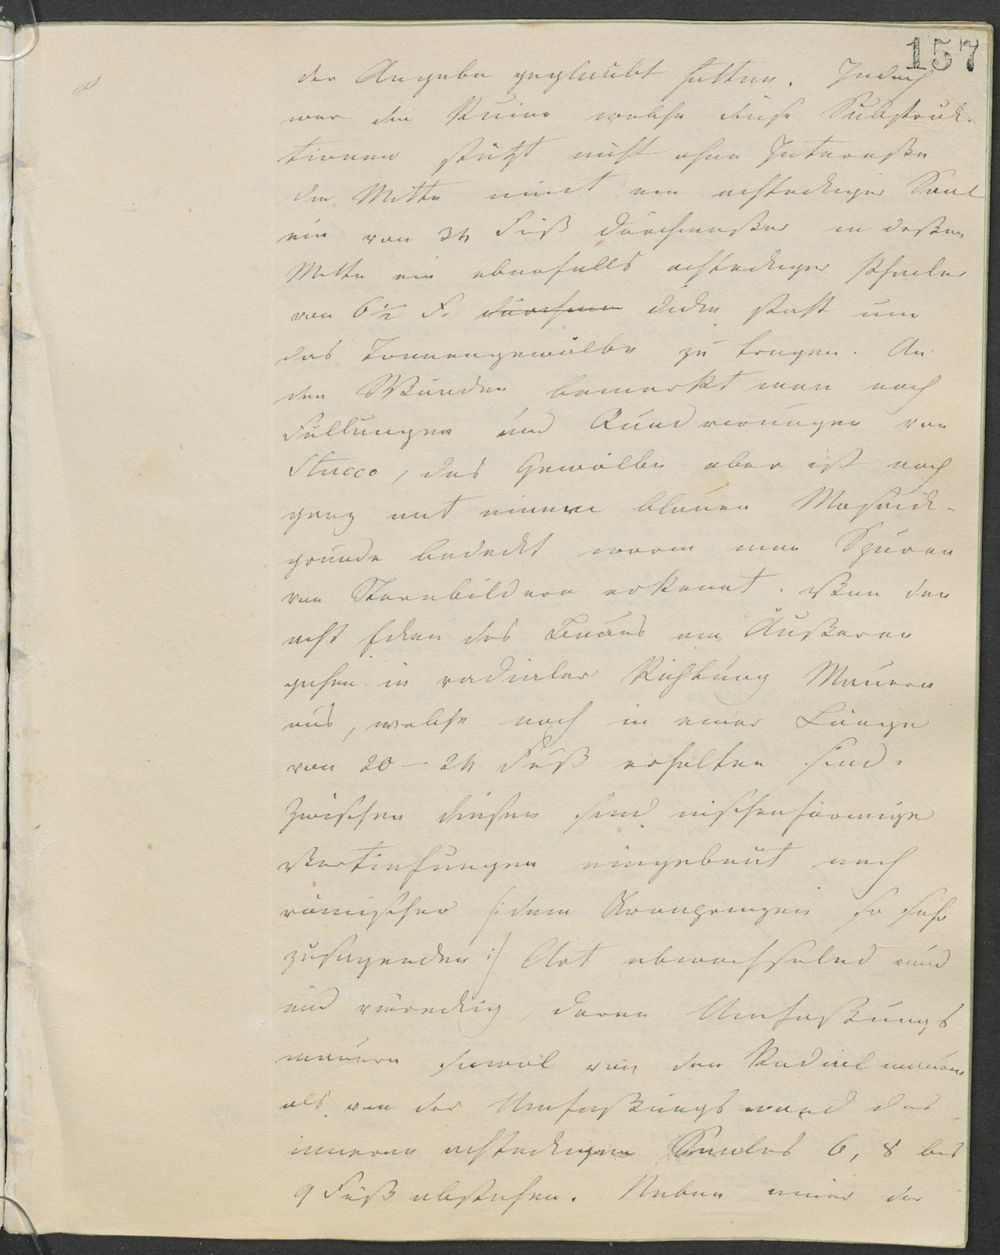 157
der Angabe geglaubt hatten. Jedoch
war die Ruine welche diese Substruk-
tionen stützt nicht ohne Interesse
die Mitte nimt ein achteckiger Saal
ein von 34 Fuß Durchmesser in dessen
Mitte ein ebenfalls achteckiger Pfeiler
von 6 1/2 F. Dicke steht um
das Tonnengewölbe zu tragen. An
den Wänden bemerkt man noch
Füllungen und Quadrirungen von
Stucco, das Gewölbe aber ist noch
ganz mit einem blauen Mosaik-
grunde bedeckt worin man Spuren
von Sternbildern erkennt. Von den
acht Ecken des Baues am Äußeren
gehen in radialer Richtung Mauern
aus, welche noch in einer Länge
von 20 – 24 Fuß erhalten sind.
Zwischen diesen sind nischenförmige
Vertiefungen eingebaut nach
römischer /: dem so sehr
zusagenden :/ Art abwechselnd rund
und viereckig, deren Umfassungs
mauern sowol von den Radialmauern
als von der Umfassungswand des
inneren achteckigen Saales 6, 8 bis
9 Fuß abstehen. Neben einer der